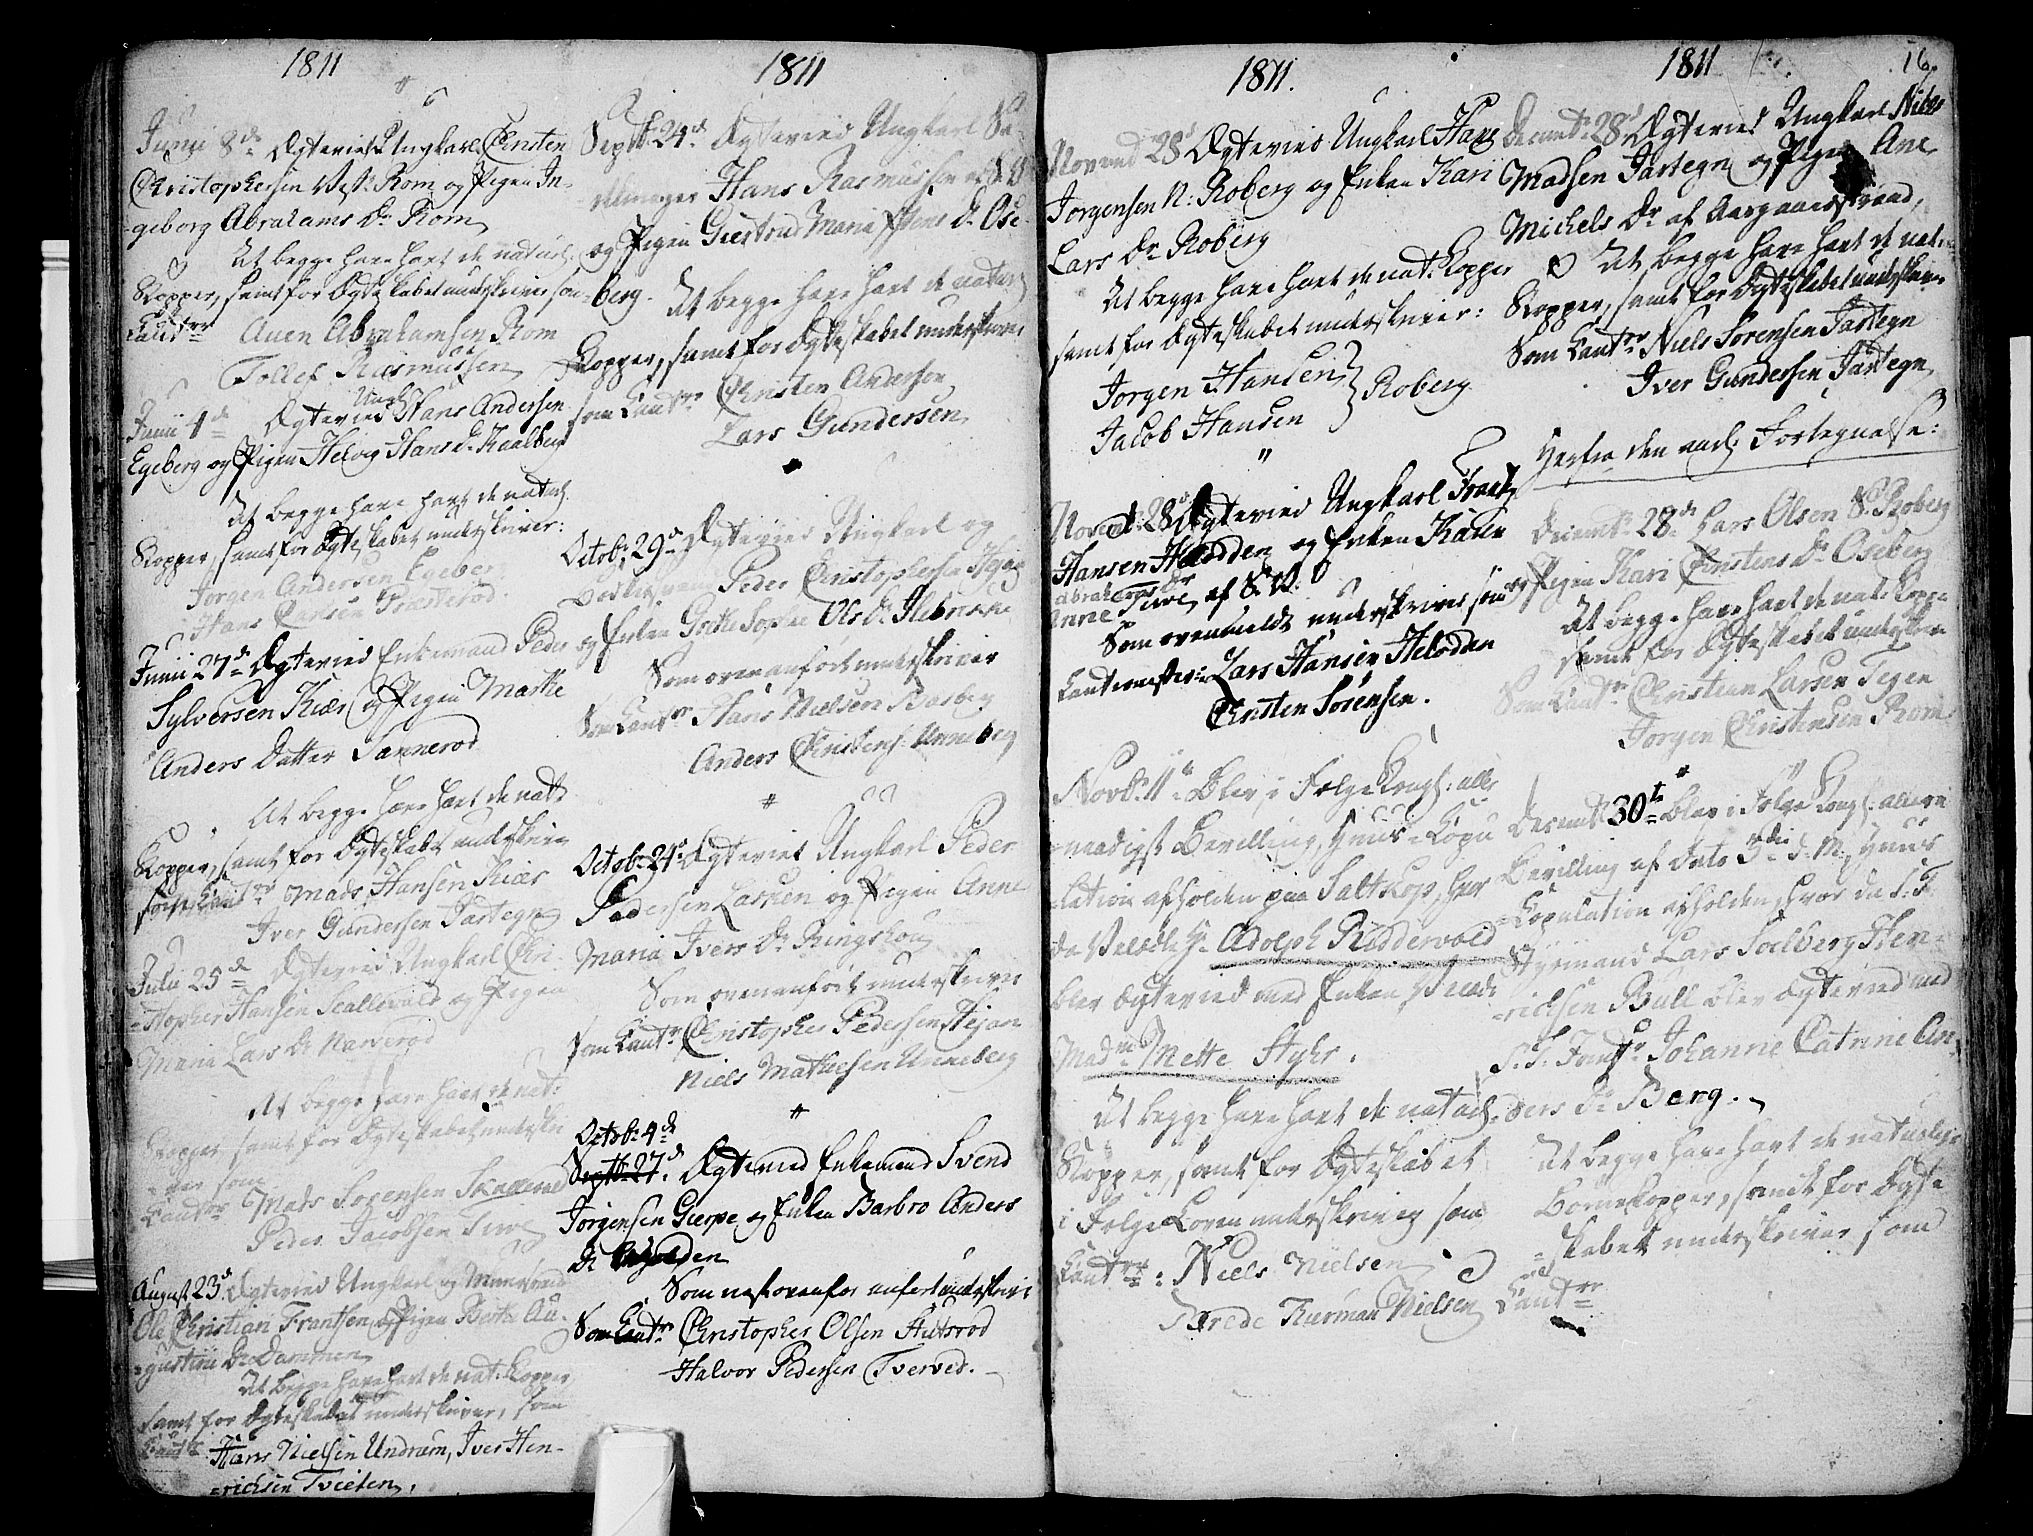 1811
Junii 8de Ægteviet Ungkarl Christen
Christophersen Vest: Rom og Pigen In-
geborg Abrahams Dr Rom
At begge have havt de naturl:
Kopper, samt for Ægteskabet underskriver som
Cautrr Aven Abrahamsen Rom
Tollef Rasmussen
Junii 4de Ægteviet Ungk. Hans Andersen
Egeberg og Pigen Helvig Hans Dr Kaalberg
At begge have havt de naturl:
Kopper, samt for Ægteskabet underskriver:
Jørgen Andersen Egeberg
Hans Larsen Træsterød
Junii 27de Ægteviet Enkemand Peder
Sylversen Kiær og Pigen Marthe
Anders Datter Sannerød
At begge have havt de nat:
Kopper, samt for Ægteskabet underskriver
som Cautrr Mads Hansen Kiær
Iver Gundersen Jartegn
Julii 25de Ægteviet Ungkarl Chri-
stopher Hansen Scallevold og Pigen
Maria Lars Dr Narverød
At begge have havt de nat:
Kopper samt for Ægteskabet underskri-
ver som
Cautrr Mads Sorensen
Peder Jacobsen Tem
August 23de Ægteviet Ungkarl og
Ole Christian Frantsen og Pigen Berthe Au-
gustini Dr Dammen
At begge have havt de nat: Kopper
samt for Ægteskabet underskriver, som
Cautrr Hans Nielsen Undrum, Iver Hen-
richsen Tvieten.
1811
Septb: 24de Ægteviet Ungkarl
Hans Rasmussen
og Pigen Giertrud Maria Dr Ose-
berg. At begge have havt de naturl
Kopper, samt for Ægteskabet underskriver
som Cautrr Christen Andersen
Lars Gundersen
Octob: 29de Ægteviet Ungkarl og
Peder Christophersen
og Enken Grethe Sophie Ols Dr
Som ovenanført underskriver
Som Cautrr Hans Nielsen Basberg
Anders Christens: Unneberg
Octob: 24de Ægteviet Ungkarl Peder
Pedersen Lasken og Pigen Anne
Maria Ivers Dr Ringshoug
Som ovenanført underskriver
som Cautr Christopher Pedersen Stejan
Niels Mathiesen Unneberg
Octob: 4de
Septb: 27de Ægteviet Enkemand Svend
Jørgensen Gierpe og Enken Barbro Anders
Dr
Som næst ovenfor anført underskriver
Som Cautr Christopher Olsen Stutsrød
Halvor Pedersen Tverved.
1811.
Novemb 28de Ægteviet Ungkarl Hans
Jørgensen N: Roberg og Enken Kari
Lars Dr Roberg
At begge have havt de nat: Kopper
samt for Ægteskabet underskriver:
Jørgen Hansen
Jacob Hansen } Roberg
Novemb: 28de Ægteviet Ungkarl Frantz
Hansen Helodden og Enken Karen
Abrahams Dr
Anne Tem af S. V:
Som ovenmeldt underskriver som
Cautionister: Lars Hansen Helodden
Christen Sørensen.
Novbr: 11te Blev i Følge Kongl: aller-
naadigst Bevilling, Huus-Copu-
lation afholden paa Saltkop, her
da Velædle Hr Adolph Ridderwold
blev Ægteviet med Enken Velædle
Madm Mette Styhr.
At begge have havt de naturl:
Kopper, samt for Ægteskabet
i Følge Loven underskriver som
Cautrr: Niels Nielsen
Brede Thurman Nielsen
1811 16.
Decembr: 28de Ægteviet Ungkarl Niels
Madsen Jartegn og Pigen Ane
Michels Dr af Aasgaardstrand,
At begge have havt de nat:
Kopper, samt for Ægteskabet underskriver
Som Cautrr Niels Sørensen Jartegn
Iver Gundersen Jartegn
Herfra den aarl: Fortegnelse:
Decembr: 28de Lars Olsen S: Roberg
og Pigen Kari Christens Dr Oseberg
At begge have havt de nat: Kopper
samt for Ægteskabet underskriver
Som Cautr: Christian Larsen Tegen
Jørgen Christensen Rom
Decembr 30te blev i Følge Kongl: allern:
Bevilling af Dato 3die d: M: Huus
Copulation afholden, hvor da S. T.
Styrmand Lars Solberg Hen-
richsen Bull blev Ægteviet med
S. T. Jomfr Johanne Catrine An-
ders Dr Berg.
At begge have havt de naturlige
Børnekopper, samt for Ægte-
skabet underskriver som
Cautrr